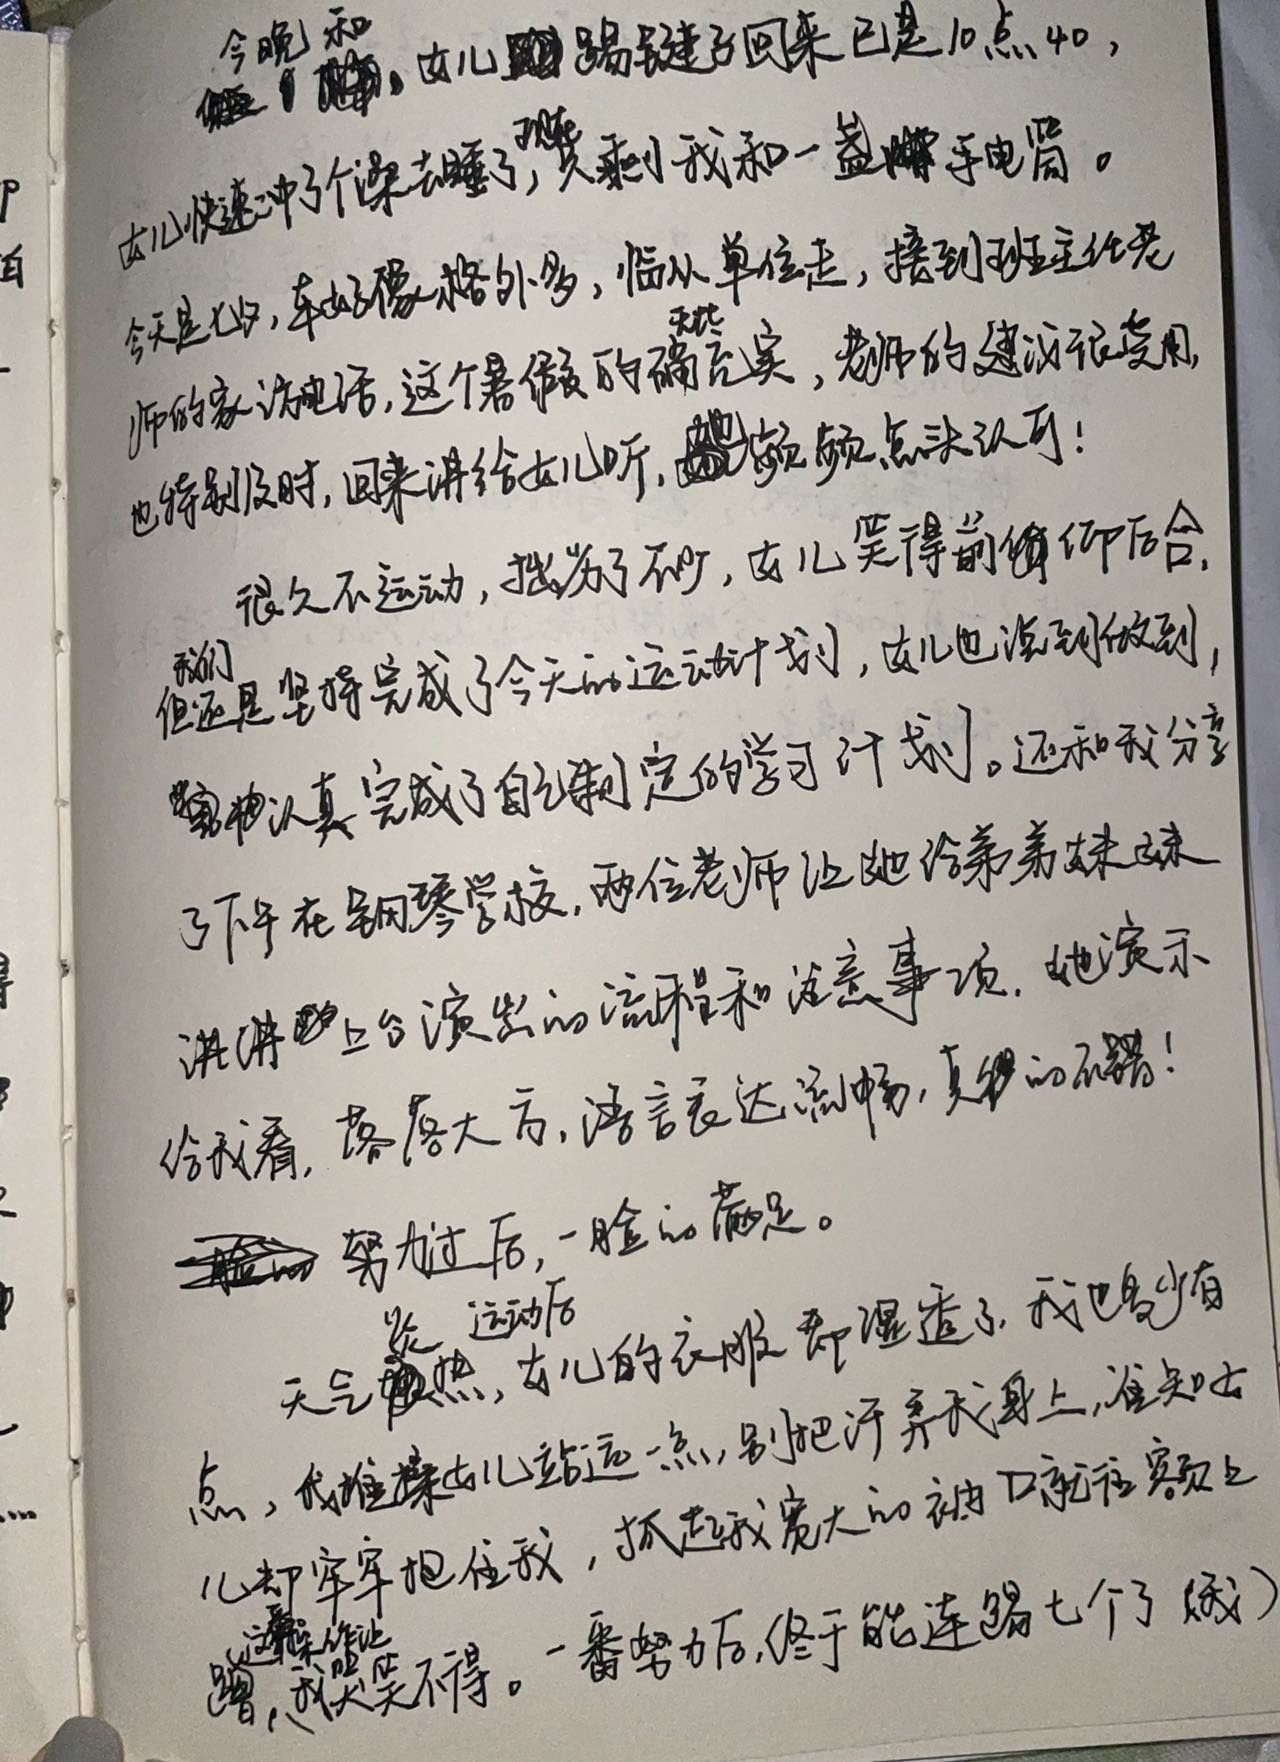 今晚和女儿踢毽子回来已是10点40，
女儿快速冲了个澡去睡了，现在只剩下我和一盏手电筒。
今天是七夕，车好像格外多，临从单位走，接到班主任老
师的家访电话，这个暑假的确充实，老师的建议很受用，
也特别及时，回来讲给女儿听，她频频点头认可！
很久不运动，拙劣了不少，女儿笑得前仰后合，
但我们还是坚持完成了今天的运动计划，女儿也说到做到，
认真完成了自己制定的学习计划。还和我分享
了下午在钢琴学校，两位老师让她给弟弟妹妹
讲讲上台演出的流程和注意事项，她演示
给我看，落落大方，语言表达流畅，真的不错！
努力过后，一脸的满足。
天气炎热，运动后女儿的衣服都湿透了，我也多少有
点，我推搡女儿站远一点，别把汗弄我身上，谁知女
儿却牢牢抱住我，抓起我宽大的袖口就往额上
蹭，这番操作让我哭笑不得。一番努力后，终于能连踢七个了（我）